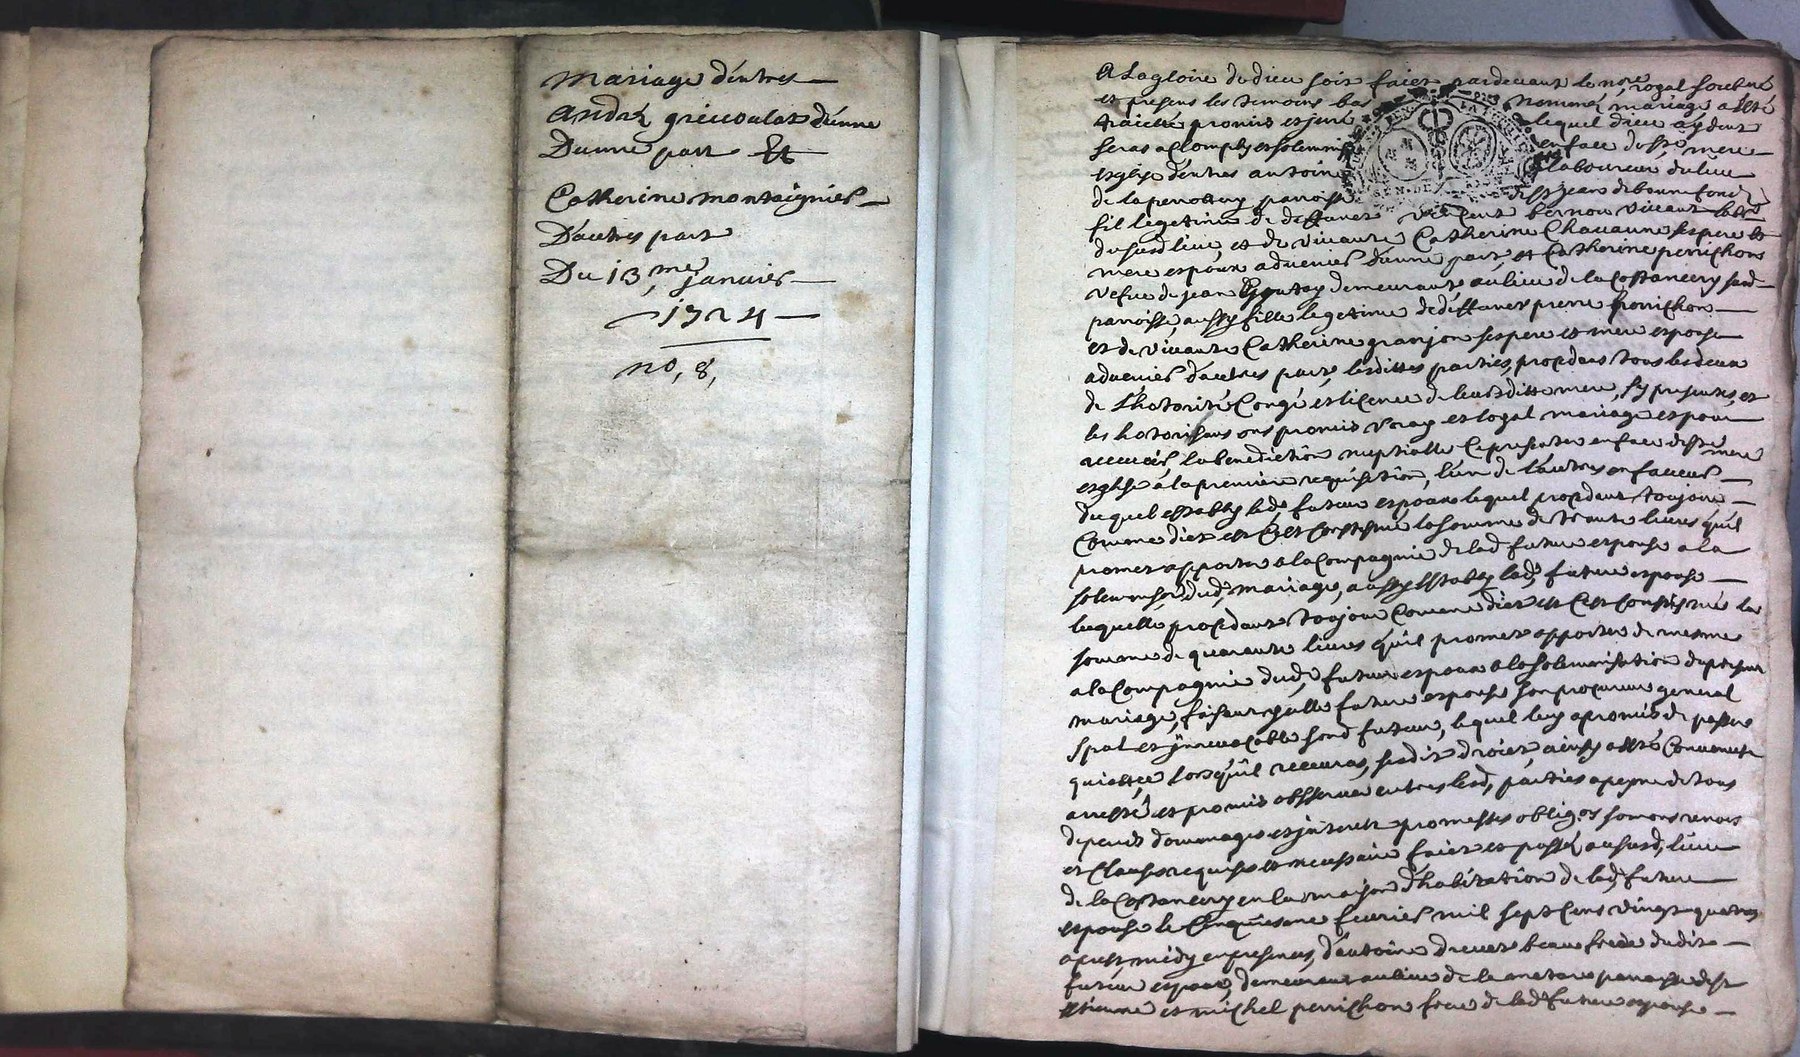 Mariage d'entres
André greicoulat d'une
D'aune part Et
Catherine montaignier
D'autres part
Du 13,me janvier
1724
no, 8,
A La gloire de dieu soit faict pardevant le nore royal soubné
et presens les temoins bas nommés mariage a esté
traicté promis et juré lequel dieu aydant
seras accomply et solemni en face de ste mere
esglize d'entres antoine laboureur du lieu
de la peroteny parroisse de st jean de bonnefond
fil legetime de deffunct vincent bernou vivant labr
dususd lieu, et de vivante Catherine Chavanne ses pere et
mere espoux advenir d'une part, et Catherine perrichon
vefve de jean goutay demeurante au lieu de la Costancery susd
parroisse, aussy fille legetime de deffunct pierre perrichon
et de vivante Catherine granjon ses pere et mere espouse
advenir d'autres part, lesdittes parties, procedant tous les deux
de l'hotorité Congé et licence de leursditte mere, sy presentes, et
les hotorisant ont promis vray et loyal mariage et pour
recevoir la benediction nuptialle Ce presenter en face de ste mere
esglise a la premiere requisition, l'un de l'autres en faveur
duquel estably led, futur espoux lequel procedant toujour
Comme dict est C'est Constitué la somme de trante livres qu'il
promet apporter a la Compagnie de lad future espouse a la
solemnison dud, mariage, aussy estably lad, future espouse
laquelle procedante toujour Comme dict est C'est Constitués la
somme de quarante livres qu'il promet apporter de mesme
a la Compagnie dud, futur espoux a la solemnisation du present
mariage, faisant ycelle future espouse son procureur general
spal et yrrevocable sond futeur, lequel luy a promis de passer
quictée lorsqu'il recevras, sesdit droict, ainsy a esté Convenut
arresté et promis obsserver entres lesd, parties a peyne de tous
depends dommages et jnterest promesses obliges somons renons
et Clauses requises et necessaire faict et passé, au susd, lieu
de la Costancery en la maison d'habitation de lad, future
espouse le Cinquiesme fevrier mil sept Cens vingt quatres
apres midy en presences, d'antoine drevet beau frere dudit
futeur espoux, demeurant au lieu de la parroisse de st
Etienne et michel perrichon frere de lad, future espouse